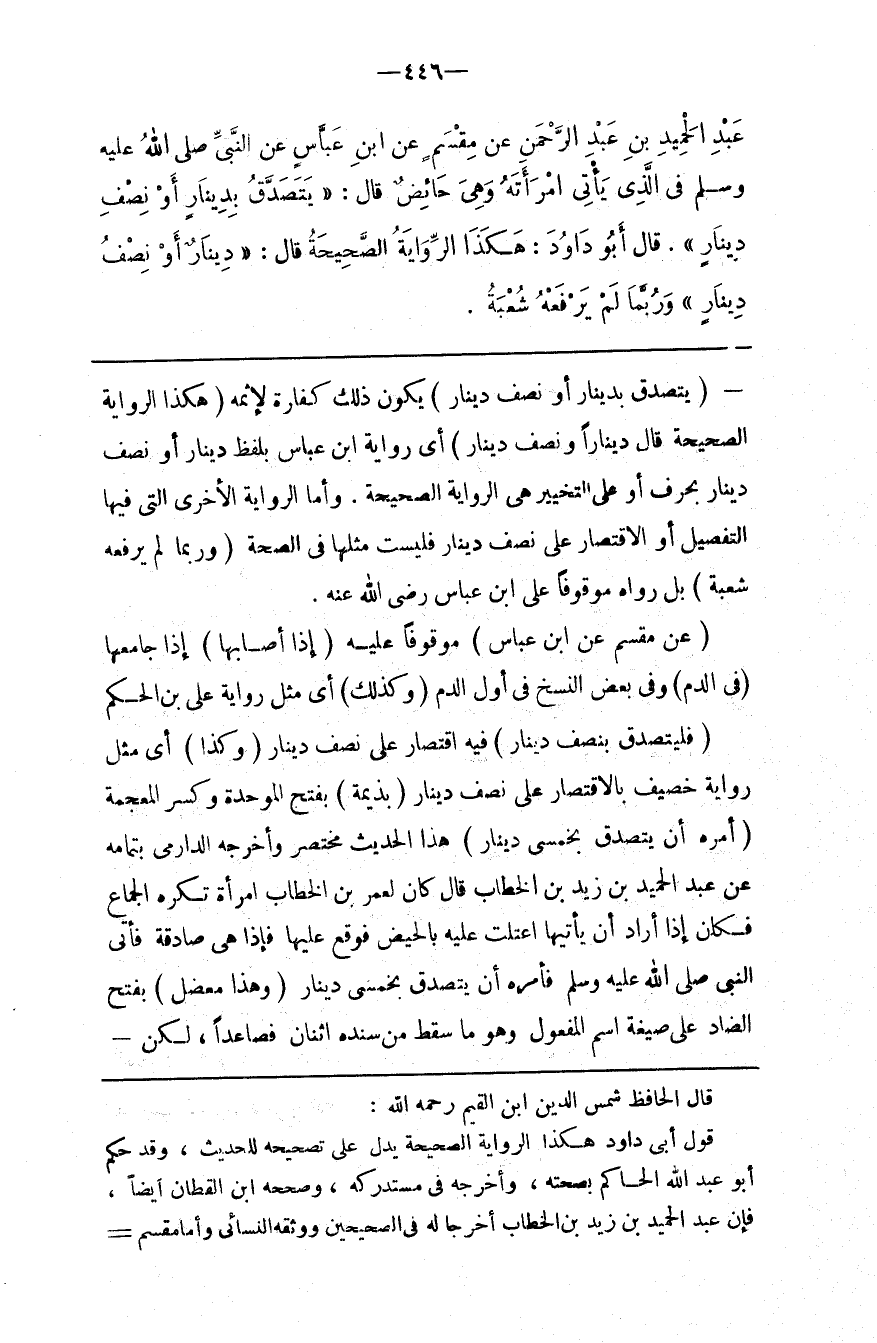 —٤٤٦—
عَبْدِ الحْمِيدِ بنِ عَبْدِ الرَّحْمَنِ عن مِقْسَمٍ عن ابنِ عَبَّاسٍ عن النَّبىِّ صلى اللهُ عليه
وسلم فى الَّذِى يَأْتِى امْرَأَتَهُ وَهِىَ حَائِضٌ قال : « يَتَصَدَّقُ بِدِينَارٍ أَوْ نِصْفِ
دِينَارٍ » . قال أَبُو دَاوُدَ : هَكَذَا الرِّوَايَةُ الصَّحِيحَةُ قال : « دِينَارٌ أَوْ نِصْفُ
دِينَارٍ » وَرُبَّمَا لَمْ يَرْفَعْهُ شُعْبَةُ .
— ( يتصدق بدينار أو نصف دينار ) يكون ذلك كفارة لإثمه ( هكذا الرواية
الصحيحة قال ديناراً ونصف دينار ) أى رواية ابن عباس بلفظ دينار أو نصف
دينار بحرف أو على التخيير هى الرواية الصحيحة . وأما الرواية الأخرى التى فيها
التفصيل أو الاقتصار على نصف دينار فليست مثلها فى الصحة ( وربما لم يرفعه
شعبة ) بل رواه موقوفاً على ابن عباس رضى الله عنه .
( عن مقسم عن ابن عباس ) موقوفاً عليه ( إذا أصابها ) إذا جامعها
(فى الدم) وفى بعض النسخ فى أول الدم (وكذلك) أى مثل رواية على بن الحكم
( فليتصدق بنصف دينار ) فيه اقتصار على نصف دينار ( وكذا ) أى مثل
رواية خصيف بالاقتصار على نصف دينار ( بذيمة ) بفتح الموحدة وكسر المعجمة
( أمره أن يتصدق بخمسى دينار ) هذا الحديث مختصر وأخرجه الدارمى بتمامه
عن عبد الحميد بن زيد بن الخطاب قال كان لعمر بن الخطاب امرأة تكره الجماع
فكان إذا أراد أن يأتيها اعتلت عليه بالحيض فوقع عليها فإذا هى صادقة فأتى
النبى صلى الله عليه وسلم فأمره أن يتصدق بخمسى دينار ( وهذا معضل ) بفتح
الضاد على صيغة اسم المفعول وهو ما سقط من سنده اثنان فصاعداً ، لكن —
قال الحافظ شمس الدين ابن القيم رحمه الله :
قول أبى داود هكذا الرواية الصحيحة يدل على تصحيحه للحديث ، وقد حكم
أبو عبد الله الحاكم بصحته ، وأخرجه فى مستدركه ، وصححه ابن القطان أيضاً ،
فإن عبد الحميد بن زيد بن الخطاب أخرجا له فى الصحيحين ووثقه النسائى وأما مقسم =